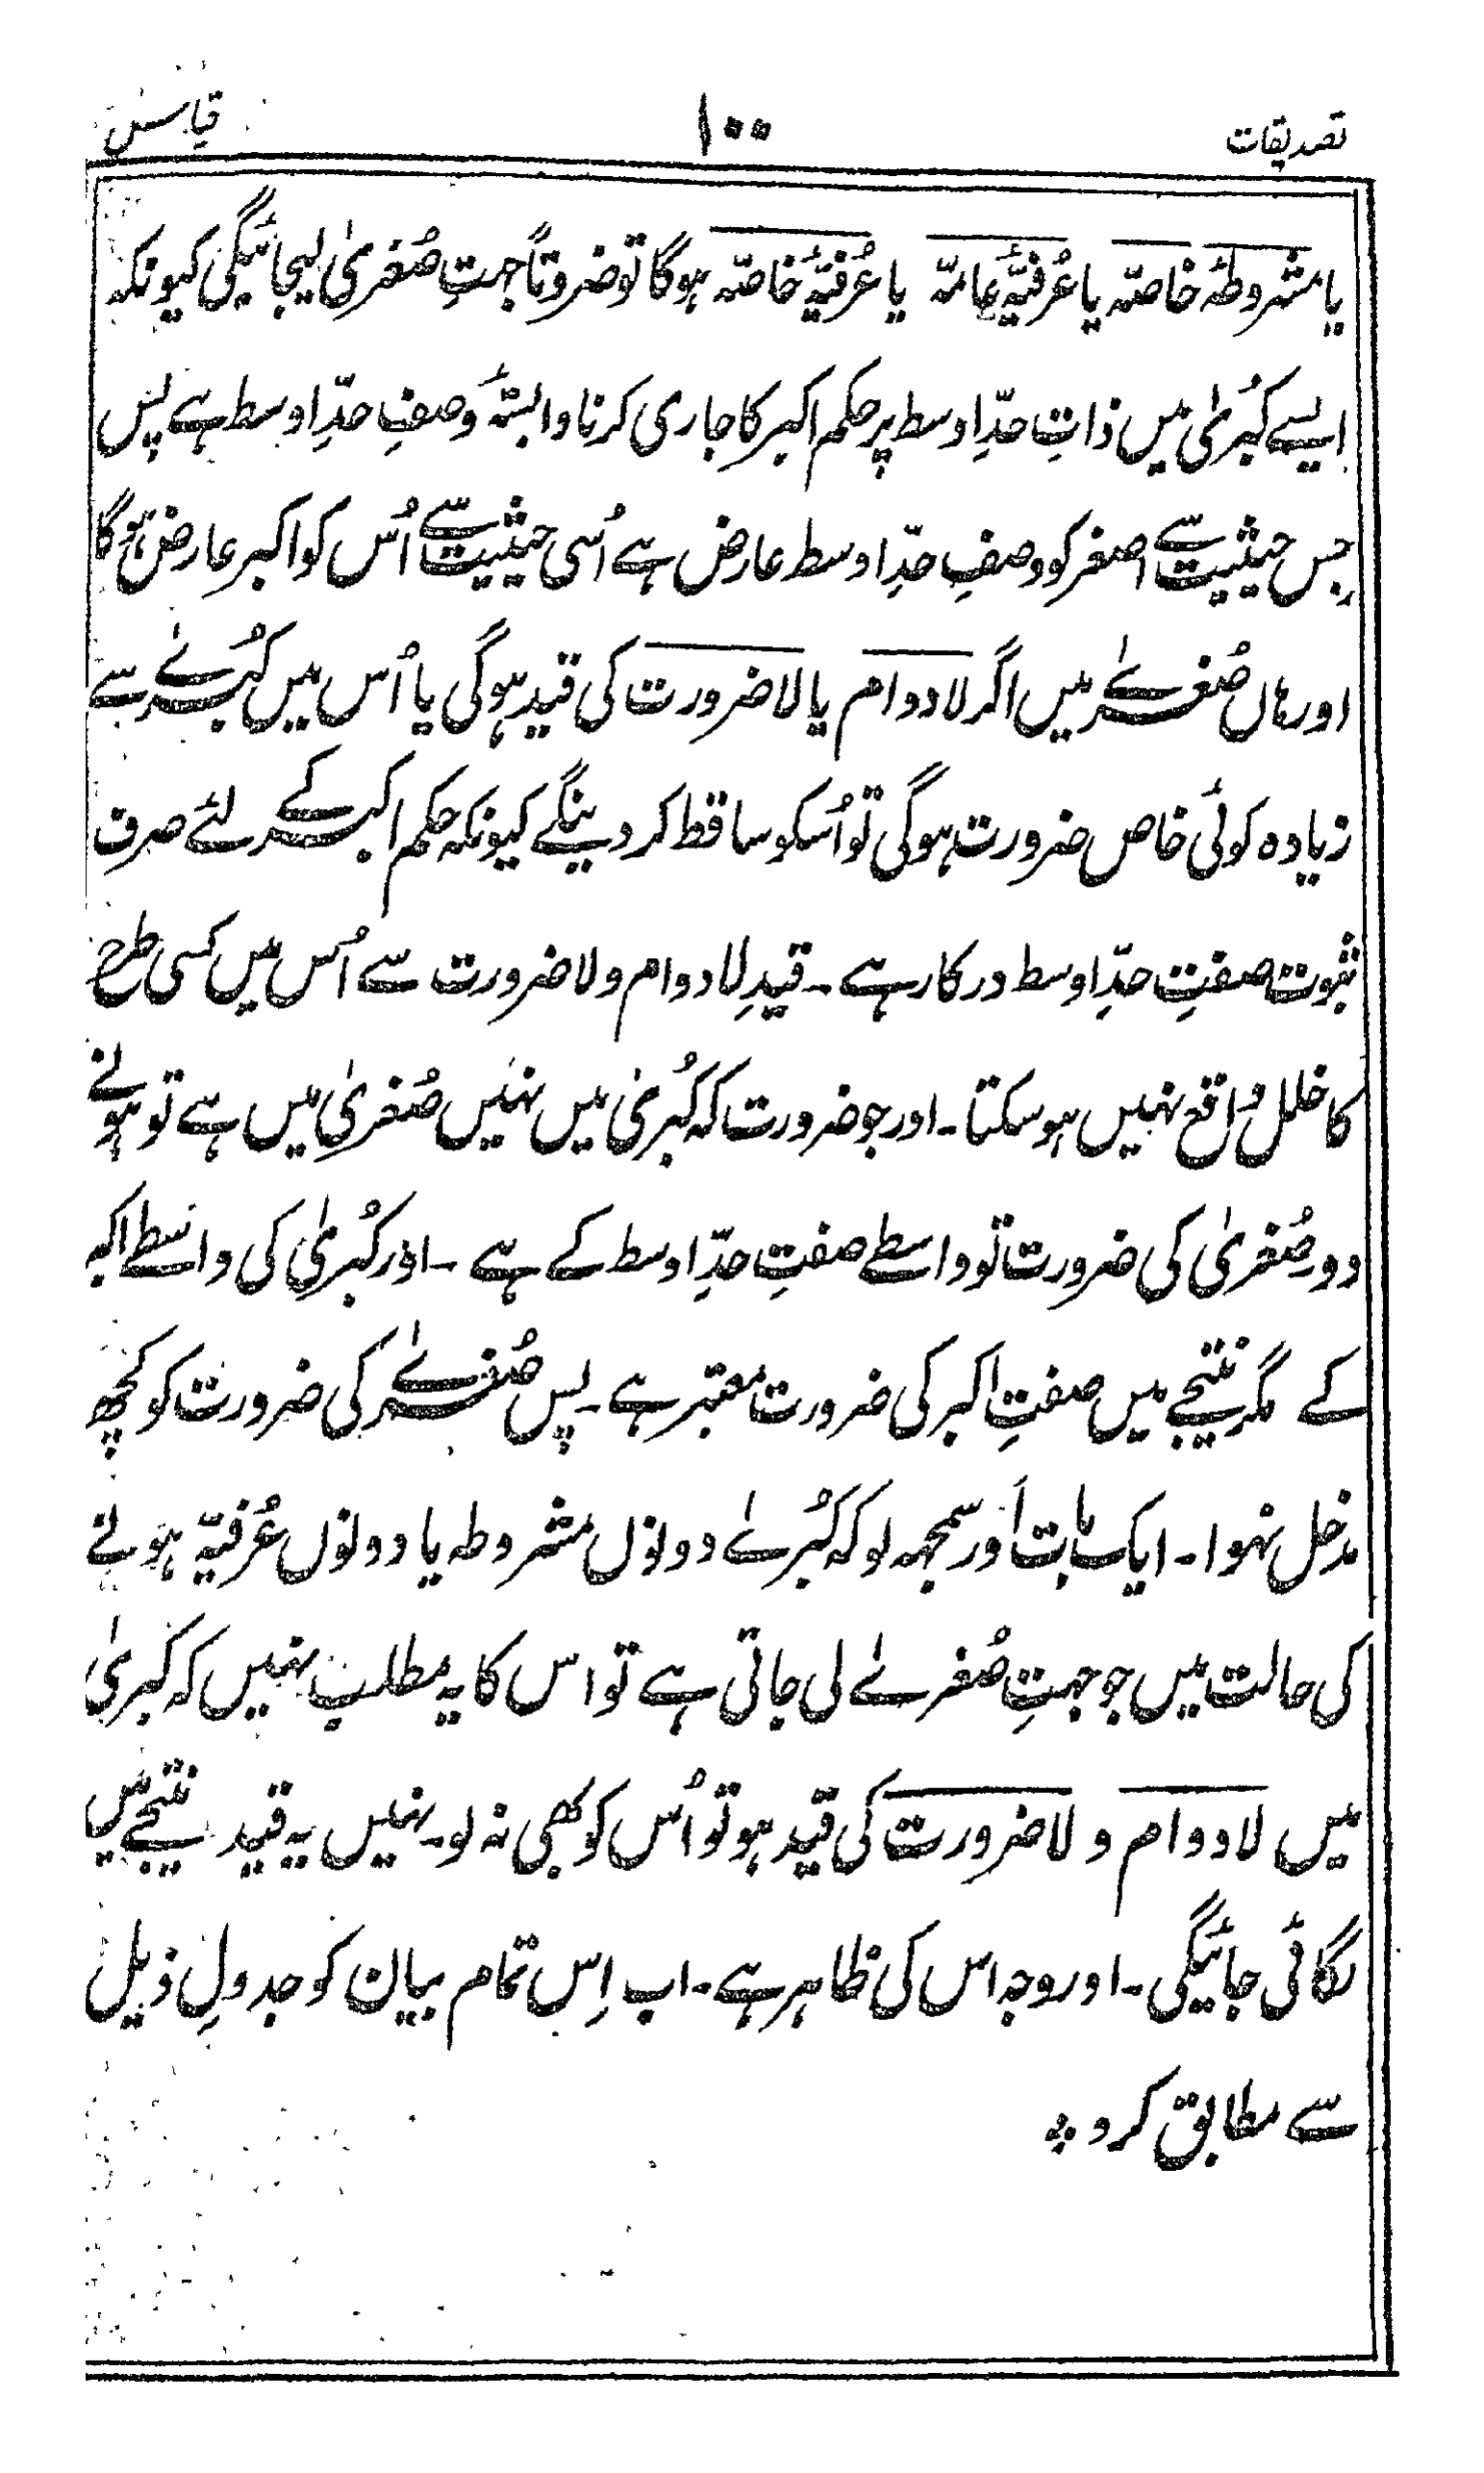 تصدیقات ۱۰۰ قیاس
یا مشروطۂ خاصّہ یا عُرفیّۂ عامّہ یا عُرفیّۂ خاصّہ ہوگا تو ضروتاً جہتِ صُغریٰ لیجائیگی کیونکہ
ایسے کُبریٰ میں ذاتِ حدِّ اوسط پر حکم اکبر کا جاری کرنا وابستۂ وصفِ حدِّ اوسط ہے پس
جِس حیثیت سے اصغر کو وصفِ حدِّ اوسط عارض ہے اُسی حیثیت سے اُس کو اکبر عارض ہوگا
اور ہاں صُغرےٰ میں اگر لادوام یا لاضرورت کی قید ہوگی یا اُس میں کُبرےٰ سے
زیادہ کوئی خاص ضرورت ہوگی تو اُسکو ساقط کر دینگے کیونکہ حکم اکبر کے لئے صرف
ثبوت صفتِ حدِّ اوسط درکار ہے ۔ قیدِ لادوام و لاضرورت سے اُس میں کسی طرح
کا خلل واقع نہیں ہو سکتا ۔ اور جو ضرورت کہ کُبریٰ میں نہیں صُغریٰ میں ہے تو ہونے
دو صُغریٰ کی ضرورت تو واسطے صفتِ حدِّ اوسط کے ہے ۔ اور کُبریٰ کی واسطے اکبر
کے مگر نتیجے میں صفتِ اکبر کی ضرورت معتبر ہے ۔ پس صُغرےٰ کی ضرورت کو کچھ
مدخل نہوا ۔ ایک بات اَور سمجھ لو کہ کُبرےٰ دونوں مشروطہ یا دونوں عُرفیّہ ہونے
کی حالت میں جو جہتِ صُغرےٰ لی جاتی ہے تو اس کا یہ مطلب نہیں کہ کبریٰ
میں لادوام و لاضرورت کی قید ہو تو اُس کو بھی نہ لو ۔ نہیں یہ قید نتیجے میں
لگائی جائیگی ۔ اور وجہ اس کی ظاہر ہے ۔ اب اِس تمام بیان کو جدولِ ذیل
سے مطابق کرو ۔